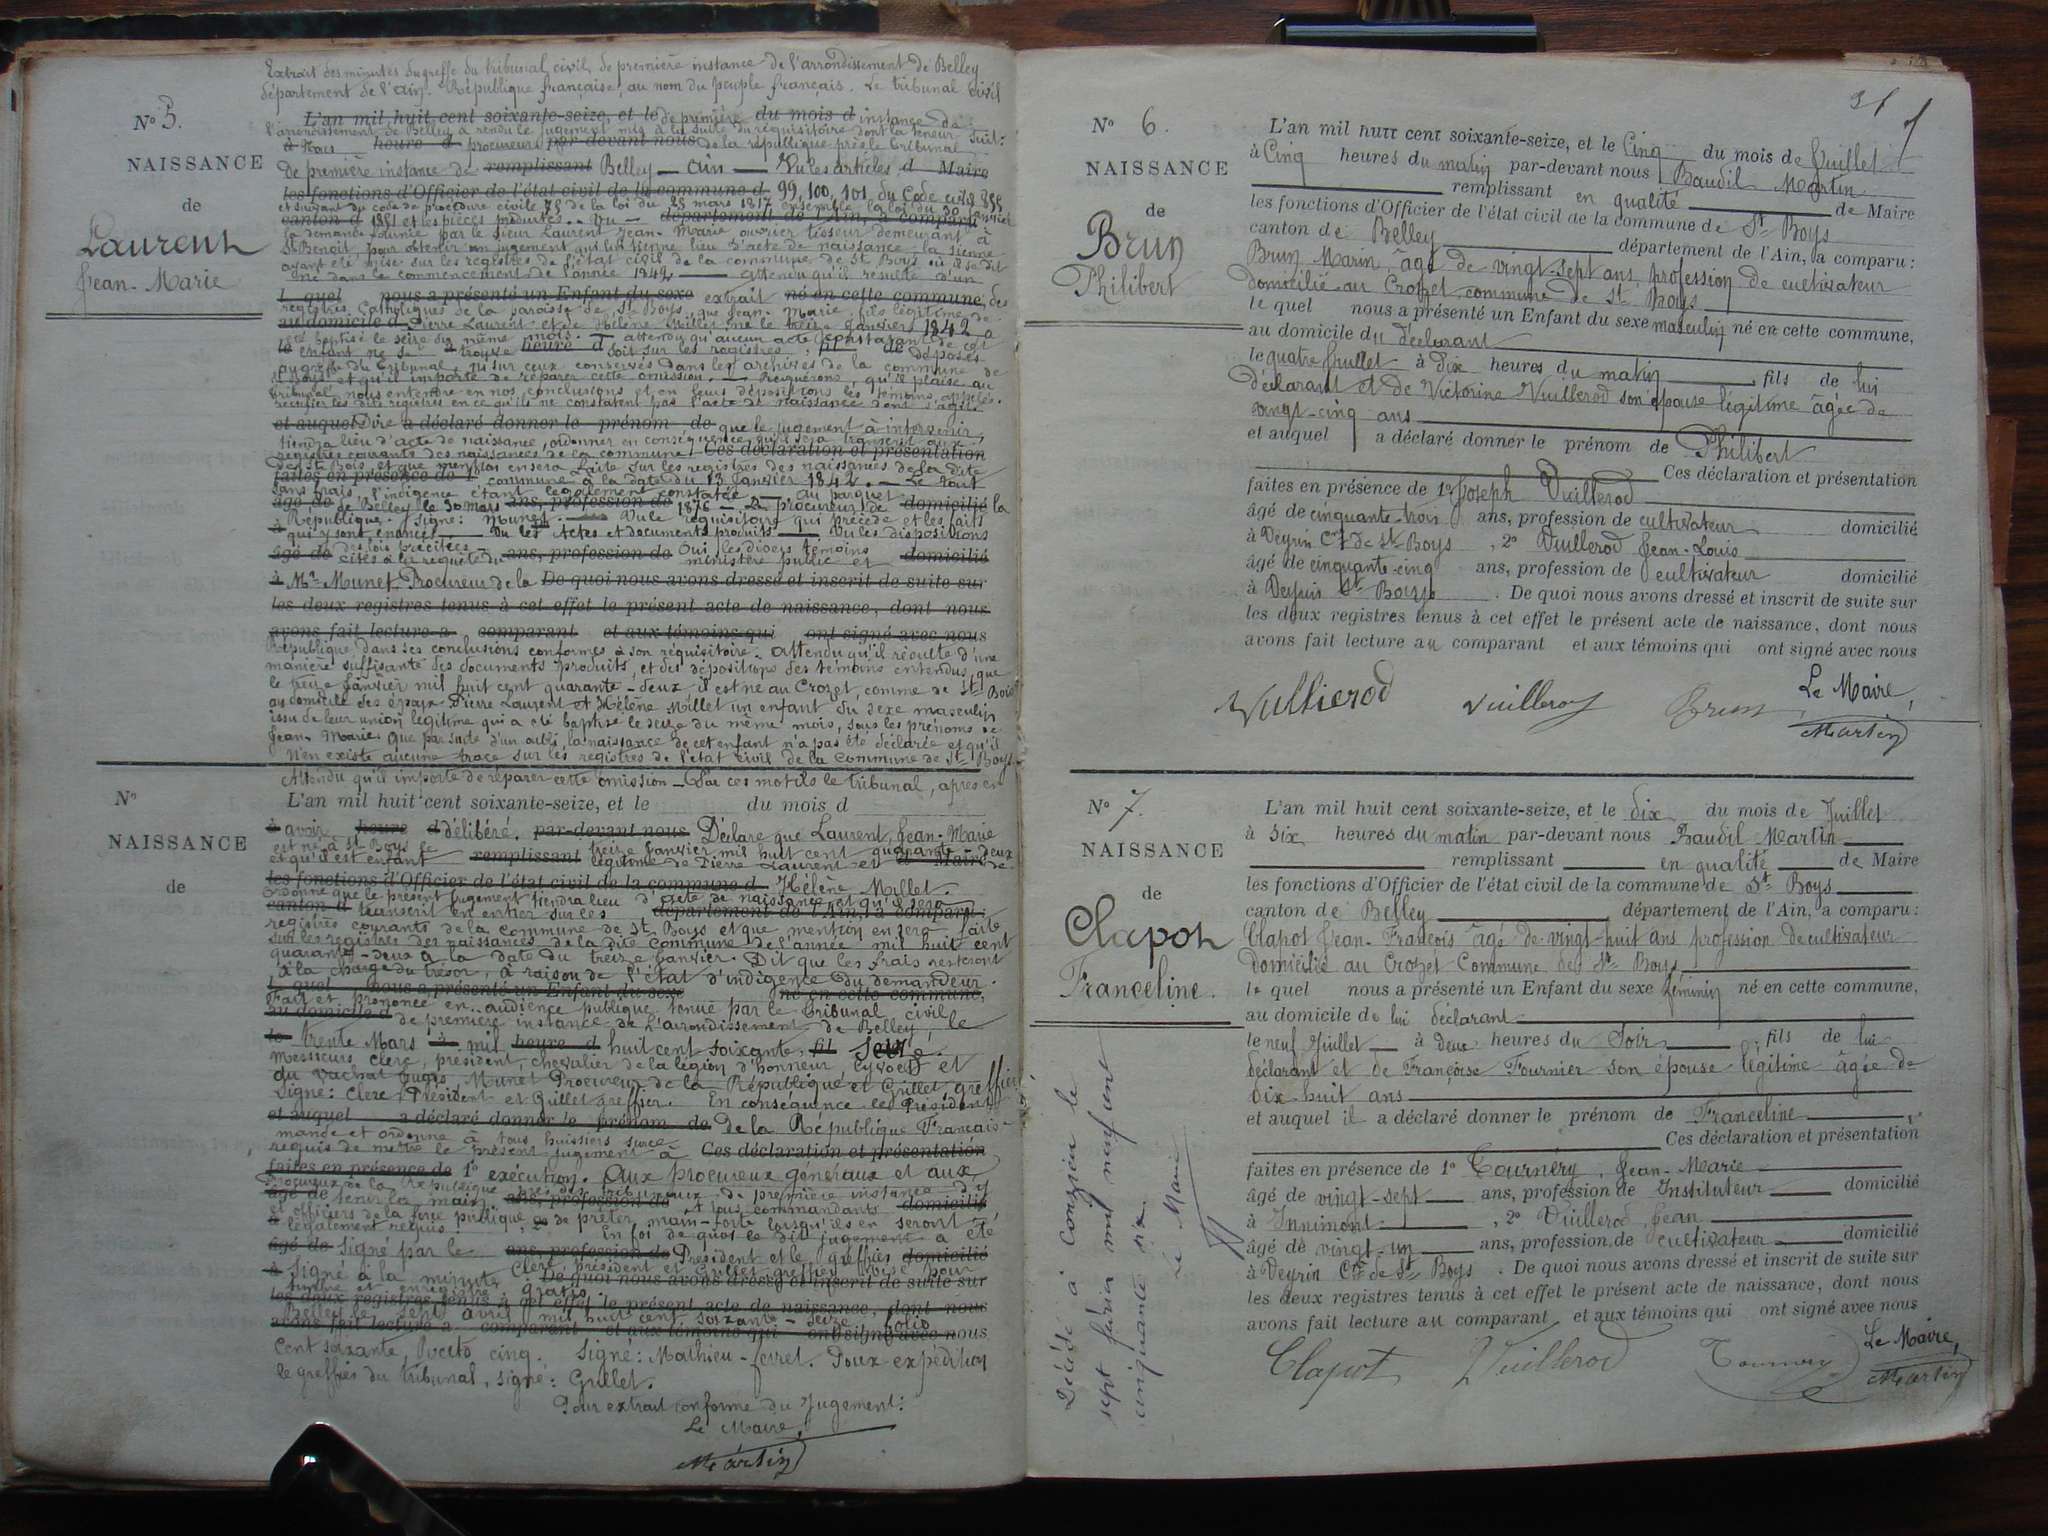 Extrait des minutes du greffe du tribunal civil de première instance de l'arrondissement de Belley
département de l'ain. République française, au nom du peuple français. Le tribunal civil
N° 5.
NAISSANCE
de
Laurent
Jean-Marie
L'an mil huit cent soixante-seize, et le de première du mois d instance de
l'arrondissement de Belley a rendu le jugement mis à la suite du réquisitoire dont la teneur suit:
à Nous heure d procureur par-devant nous de la république près le tribunal
de première instance de remplissant Belley — Ain — Vu les articles d Maire
les fonctions d'Officier de l'état civil de la commune d 99, 100, 101 du Code civil 855
et suivant du code de procédure civile 75 de la loi du 25 mars 1817 ensemble la loi du 30 janvier
canton d 1851 et les pièces produites. — Vu — département de l'Ain, a comparu
la demande fournie par le sieur Laurent Jean-Marie ouvrier tisseur demeurant à
St Benoit, pour obtenir un jugement qui lui tienne lieu d'acte de naissance, la sienne
ayant été omise sur les registres de l'état civil de la commune de St Boys où il se dit
né dans le commencement de l'année 1842 — attendu qu'il résulte d'un
l quel nous a présenté un Enfant du sexe extrait né en cette commune, des
registres Catholiques de la paroisse de St Boys, que Jean-Marie, fils légitime de
au domicile d Pierre Laurent et de Hélène Millet né le treize Janvier 1842 a
été baptisé le seize du même mois. — attendu qu'aucun acte constatant
le enfant ne se à trouve heure d soit sur les registres, fil de déposés
au greffe du tribunal, ni sur ceux conservés dans les archives de la commune de
St Boys et qu'il importe de réparer cette omission. — Requérons qu'il plaise au
tribunal, nous entendre en nos conclusions et en leurs dépositions les témoins appelés.
rectifier les dits registres en ce qu'ils ne constatent pas l'acte de naissance dont s'agit.
et auquel Dire a déclaré donner le prénom de que le jugement à intervenir
tiendra lieu d'acte de naissance, ordonner en conséquence qu'il sera transcrit aux
registres courants des naissances de la commune Ces déclaration et présentation
de St Bois et que mention en sera faite sur les registres des naissances de la dite
faites en présence de 1° commune à la date du 13 Janvier 1842. — Le tout
sans frais, l'indigence étant légalement constatée — au parquet
âgé de de Belley le 30 mars ans, profession de 1876 — Le procureur de domicilié la
à République. signé: Munet. — Vu le réquisitoire qui précède et les faits
qui y sont énoncés — Vu les Actes et documents produits — Vu les dispositions
âgé de des lois précitées — ans, profession de Oui les divers témoins domicilié
cités à la requête du ministère public et
à Mr Munet Procureur de la De quoi nous avons dressé et inscrit de suite sur
les deux registres tenus à cet effet le présent acte de naissance, dont nous
avons fait lecture a comparant et aux témoins qui ont signé avec nous
République dans ses conclusions conformes à son réquisitoire. Attendu qu'il résulte d'une
manière suffisante des documents produits, et des dépositions des témoins entendus, que
le treize Janvier mil huit cent quarante-deux, il est né au Crozet, comme de St Bois
au domicile des époux Pierre Laurent et Hélène Millet un enfant du sexe masculin
issu de leur union légitime qui a été baptisé le seize du même mois, sous les prénoms de
Jean-Marie. Que par suite d'un oubli, la naissance de cet enfant n'a pas été déclarée et qu'il
n'en existe aucune trace sur les registres de l'état civil de la commune de St Boys.
Attendu qu'il importe de réparer cette omission — Par ces motifs le tribunal, après en
N°
NAISSANCE
de
L'an mil huit cent soixante-seize, et le du mois d
à avoir heure d délibéré. par-devant nous Déclare que Laurent, Jean-Marie
est né à St Boys le treize Janvier mil huit cent quarante-deux
et qu'il est enfant remplissant légitime de Pierre Laurent et d Maire de
les fonctions d'Officier de l'état civil de la commune d Hélène Millet.
Ordonne que le présent jugement tiendra lieu d'acte de naissance et qu'il sera
canton d transcrit en entier sur les département de l'Ain, a comparu:
registres courants de la commune de St Boys et que mention en sera faite
sur les registres des naissances de la dite commune de l'année mil huit cent
quarante-deux à la date du treize Janvier. Dit que les frais resteront
à la charge du trésor, à raison de l'état d'indigence du demandeur.
l quel nous a présenté un Enfant du sexe né en cette commune,
Fait et prononcé en audience publique tenue par le tribunal civil
au domicile d de première instance de l'arrondissement de Belley, le
le trente Mars à mil heure d huit cent soixante, fil seize.
Messieurs Clerc, président, chevalier de la légion d'honneur, et
du Vachat juges, Munet Procureur de la République et Grillet greffier
signé: Clerc Président et Grillet greffier. En conséquence le Président
et auquel a déclaré donner le prénom de de la République Française
mande et ordonne à tous huissiers sur ce
requis de mettre le présent jugement à Ces déclaration et présentation
faites en présence de 1° exécution. Aux procureurs généraux et aux
procureurs de la République près les tribunaux de première instance d'y
âgé de tenir la main ans, profession de à tous commandants domicilié
et officiers de la force publique
à légalement requis. 2° de prêter main-forte lorsqu'ils en seront
En foi de quoi le dit jugement a été
âgé de signé par le ans, profession de Président et le greffier domicilié
à Signé à la minute Clerc, président et Grillet greffier visé pour
De quoi nous avons dressé et inscrit de suite sur
timbre et enregistré gratis.
les deux registres tenus à cet effet le présent acte de naissance, dont nous
Belley le sept avril mil huit cent soixante-seize folio
avons fait lecture a comparant et aux témoins qui ont signé avec nous
Cent soixante, recto cinq. Signé: Mathieu-ferret. Pour expédition
le greffier du tribunal, signé: Grillet.
Pour extrait conforme du Jugement:
Le Maire,
Martin
31
7
N° 6.
NAISSANCE
de
Brun
Philibert
L'an mil huit cent soixante-seize, et le Cinq du mois de Juillet
à Cinq heures du matin par-devant nous Baudil Martin
remplissant en qualité de Maire
les fonctions d'Officier de l'état civil de la commune de St Boys
canton de Belley département de l'Ain, a comparu:
Brun Marin âgé de vingt-sept ans, profession de cultivateur
domicilié au Crozet commune de St Boys
le quel nous a présenté un Enfant du sexe masculin né en cette commune,
au domicile du déclarant
le quatre Juillet à Dix heures du matin, fils de lui
déclarant et de Victorine Vuillerod son épouse légitime âgée de
vingt-cinq ans
et auquel a déclaré donner le prénom de Philibert
Ces déclaration et présentation
faites en présence de 1° Joseph Vuillerod
âgé de cinquante-trois ans, profession de cultivateur domicilié
à Veyrin Cne de St Boys, 2° Vuillerod Jean-Louis
âgé de cinquante-cinq ans, profession de cultivateur domicilié
à Veyrin St Boys. De quoi nous avons dressé et inscrit de suite sur
les deux registres tenus à cet effet le présent acte de naissance, dont nous
avons fait lecture au comparant et aux témoins qui ont signé avec nous
Le Maire,
Vullierod Vuilleroy Brun Martin
N° 7.
NAISSANCE
de
Clapot
Franceline.
L'an mil huit cent soixante-seize, et le dix du mois de Juillet
à six heures du matin par-devant nous Baudil Martin
remplissant en qualité de Maire
les fonctions d'Officier de l'état civil de la commune de St Boys
canton de Belley département de l'Ain, a comparu:
Clapot Jean-François âgé de vingt-huit ans profession de cultivateur
domicilié au Crozet Commune de St Boys
le quel nous a présenté un Enfant du sexe féminin né en cette commune,
au domicile de lui déclarant
le neuf Juillet à deux heures du Soir, fils de lui
déclarant et de Françoise Fournier son épouse légitime âgée de
dix-huit ans
et auquel il a déclaré donner le prénom de Franceline
Ces déclaration et présentation
faites en présence de 1° Tournéry, Jean-Marie
âgé de vingt-sept ans, profession de Instituteur domicilié
à Innimont, 2° Vuillerod, Jean
âgé de vingt-un ans, profession de cultivateur domicilié
à Veyrin Cne de St Boys. De quoi nous avons dressé et inscrit de suite sur
les deux registres tenus à cet effet le présent acte de naissance, dont nous
avons fait lecture au comparant et aux témoins qui ont signé avec nous
Le Maire,
Clapot Vuillerod Tournéry Martin
Décédé à Conzieu le
sept février mil neuf cent
cinquante six.
Le Maire